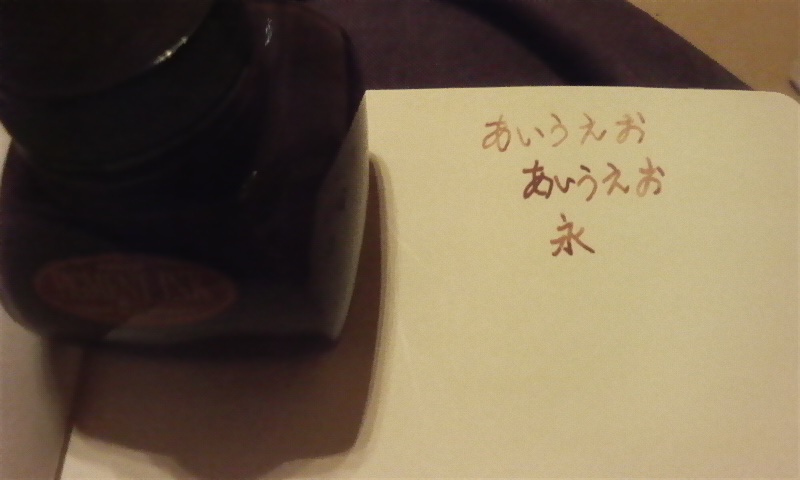 あいうえお
あいうえお
永